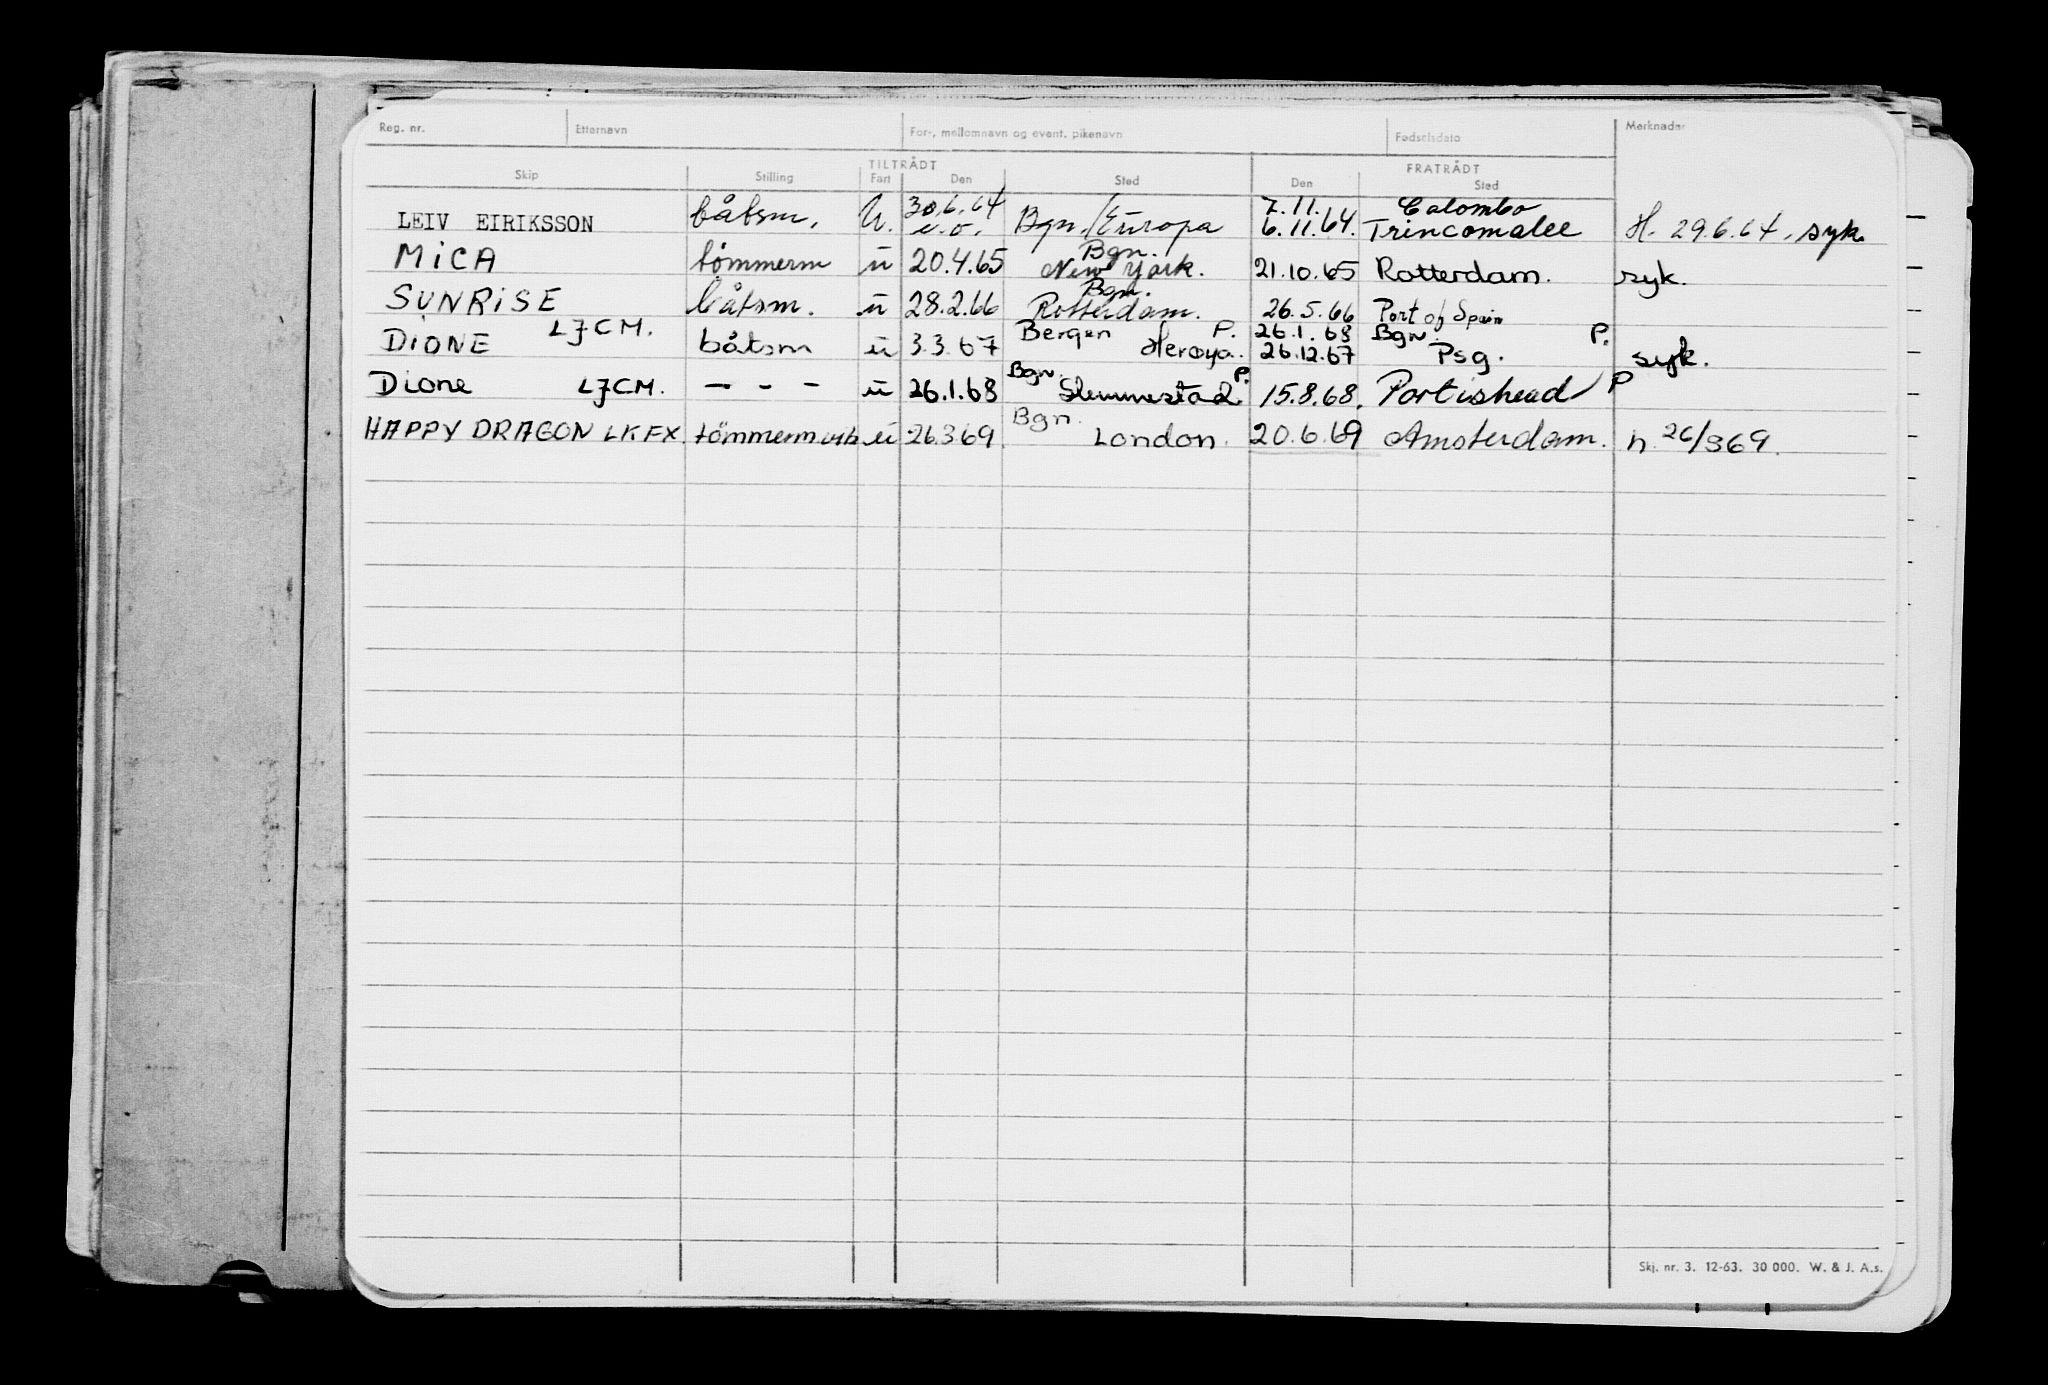 Reg. nr. Etternavn For-, mellomnavn og event. pikenavn Fødselsdato Merknader
TILTRÅDT FRATRÅDT
Skip Stilling Fart Den Sted Den Sted
LEIV EIRIKSSON båtsm. U. 30.6.64 e.o. Bgn./Europa 7.11. 6.11.64. Colombo Trincomalee H. 29.6.64, syk.
MICA tømmerm u 20.4.65 Bgn. New York. 21.10.65 Rotterdam. syk.
SUNRISE båtsm. u 28.2.66 Bgn. Rotterdam. 26.5.66 Port of Spain
DIONE LJCM. båtsm u 3.3.67 Bergen P. Herøya. 26.1.68 26.12.67 Bgn. P. Psg. syk.
Dione LJCM. - - - u 26.1.68 Bgn. P. Slemmestad. 15.8.68. Portishead P
HAPPY DRAGON LKFX tømmerm u 26.3.69. Bgn. London. 20.6.69 Amsterdam. h. 26/369.
Skj. nr. 3. 12-63. 30 000. W. & J. A.s.